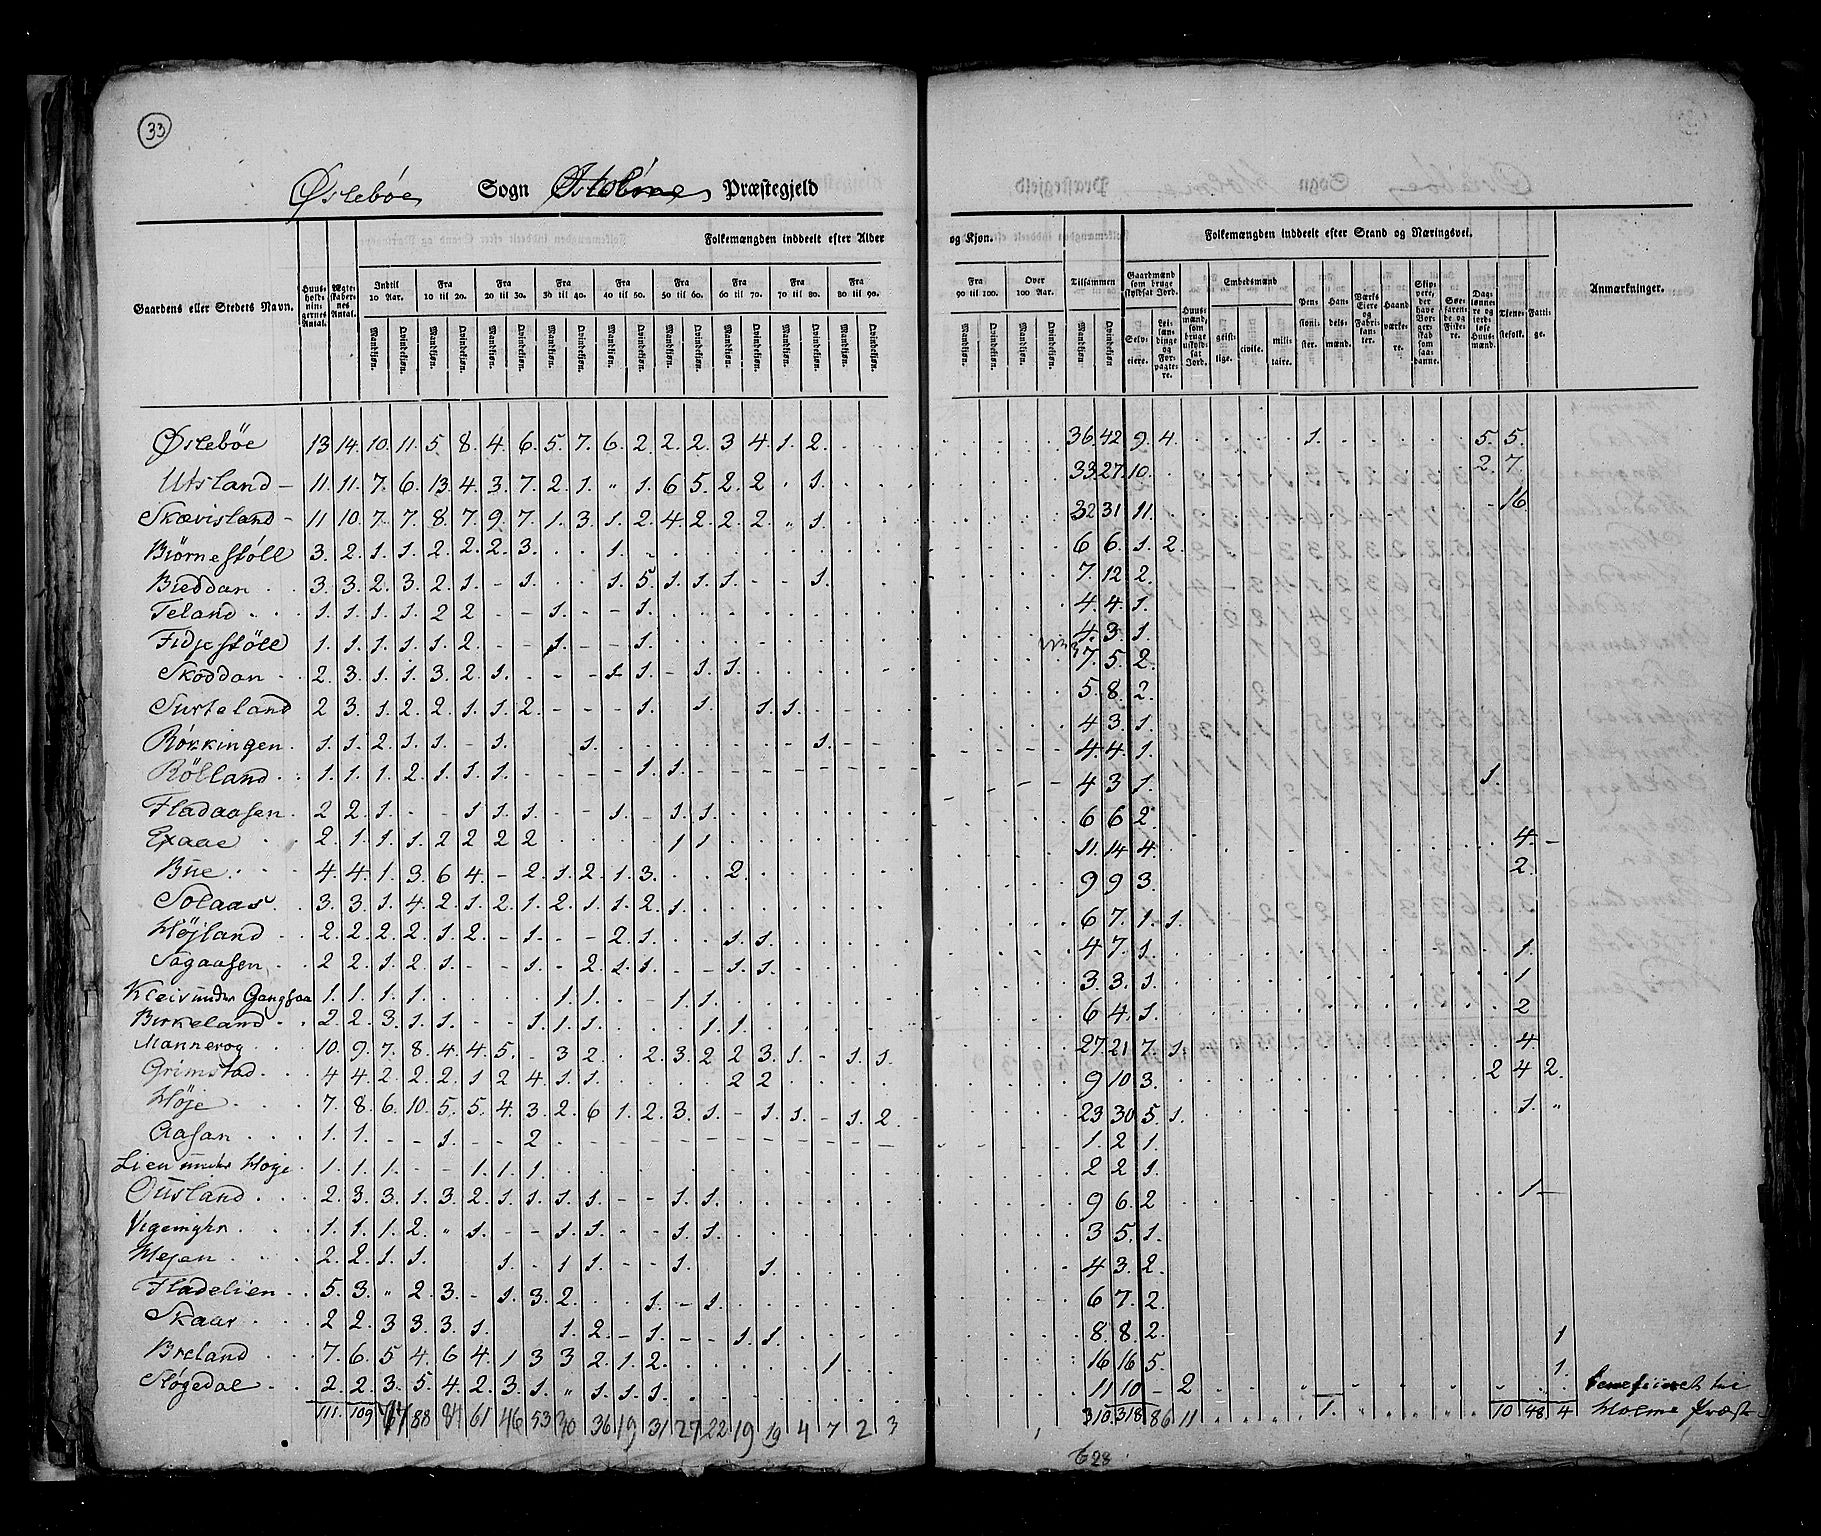 33
Øslebøe Sogn Præstegjeld
Gaardens eller Stedets Navn.
Huusholdningernes Antal.
Ægteskabernes Antal.
Folkemængden inddeelt efter Alder og Kjøn.
Indtil 10 Aar. Fra 10 til 20. Fra 20 til 30. Fra 30 til 40. Fra 40 til 50. Fra 50 til 60. Fra 60 til 70. Fra 70 til 80. Fra 80 til 90. Fra 90 til 100. Over 100 Aar. Tilsammen
Mandkjøn. Qvindekjøn.
Folkemængden inddeelt efter Stand og Næringsvei.
Gaardmænd som bruge skyldsat Jord.
Selveiere. Leilændinge og Forpagtere.
Huusmænd, som bruge uskyldsat Jord.
Embedsmænd
geistlige. civile. militaire.
Pensionister. Handelsmænd. Værks Eiere og Fabrikanter. Haandværkere. Skippere, der have Borgerskab som saadanne. Søefarende og Fiskere. Daglønnere og jordløse Huusmænd. Tienestefolk. Fattige.
Anmærkninger.
Øslebøe 13 14 10. 11. 5 8. 4 6. 5. 7. 6. 2 2. 2. 3 4. 1. 2. 36. 42 9. 4. 1. 5. 5.
Utsland 11. 11. 7. 6. 13. 4. 3. 7. 2. 1. „ 1. 6 5. 2. 2 „ 1. 33. 27. 10. 2. 7.
Skævisland 11 10. 7. 7. 8. 7. 9. 7. 1. 3. 1. 2. 4. 2. 2. 2. „ 1. 32 31 11. 16
Biörnestöll 3. 2. 1. 1. 2. 2. 2. 3. 1. 6 6. 1. 2.
Bieddan 3. 3. 2. 3. 2. 1. - 1. 1. 5. 1. 1. 1. - - 1. 7. 12 2.
Teland 1. 1. 1. 1. 2 2. 1. 1. 4. 4. 1.
Fidjestöll 1. 1. 1. 1. 1. 2. 1. 1. 4. 3. 1.
Skoddan 2. 3. 1. 1. 3. 2. 1. 1. 1. 1. 1. 7. 5. 2.
Surteland 2 3. 1. 2. 2. 1. 1. 2. 1. 1. 1. 1. 5. 8. 2.
Røkkingen 1. 1. 2. 1. 1. 1. 1. 1. 4 3. 1.
Rölland 1. 1. 1. 2. 1. 1. 1. 1. 1. 4. 4. 1.
Fladaasen 2 2. 1. 1. 1. 1. 1. 1. 1. 4 3 1. 1.
Exaae 2. 1. 1. 1. 2 2 2 2 1 1. 6 6 2.
Bue 4. 4. 1. 3. 6 4. - 2. 1. 2. 1. 3. 2. 11. 14 4. 4.
Solaas 3. 3. 1. 4. 2. 1. 2. 1. 2. 1. 1. 2. 1. 9 9 3. 2.
Højland 2. 2. 2. 2. 1. 2. - 1. 2. 1. 1. 1. 6 7. 1. 1.
Sagaasen 2 2. 1. 2. 1. 1. 2. 1. 1. 1. 1. 4. 7. 1. 1.
Kleiv under Gangsaa 1. 1. 1. 1. 1. 1. 1. 1. 3 3. 1. 1
Birkeland 2. 2. 3. 1. 1. 1. 1. 1. 1. 1. 6 4. 1. 2
Mannerog 10. 9. 7. 8. 4. 4. 5. - 3 2. 2. 3. 2 2 3. 1. - 1. 1. 27 21 7. 1. 4
Grimstad 4 4. 2. 2. 2. 1 2 4. 1. 1. 2 2. 9 10 3. 2 4 2.
Høje 7. 8. 6. 10. 5. 5. 4. 3. 2. 6 1. 2. 3. 1. - 1. 1. - 1. 2. 23 30 5. 1. 1. „
Aasan 1. 1. 1. 2 1. 2 1.
Lien under Hoje 1. 1. 1. 1. 1. 1. 2 2 1.
Ousland 2. 3. 3. 1. 3. 2. 1. 1. 1. 1. 1. 1. 9 6. 2 1
1. 1. 1. 2. „ 1. 1. 1. 1. 1. 3 5. 1.
Mejan 2. 2. 1. 1. 1. 1. 1. 1. 1. 4 3. 2.
Fladelien 5. 3. „ 2. 3. - 1. 3. 2. 1. 1. 6 7. 2.
Skaar 2 2. 3 3. 3. 1. 1. 2. 1. 1. 1. 8. 8. 2. 1
Breland 7. 6. 5 4. 6 4. 1 3 3 2. 1. 2. 1 16 16 5. 1.
Støgedal 2. 2. 3. 5. 4. 2. 3. 1. „ 1. 1. 1. 11 10 - 2
111. 109 88 61 46 53 30 36 19 31 27 22 19 19 4 7 2 3 310. 318 86 11 1. 10 48 4
628